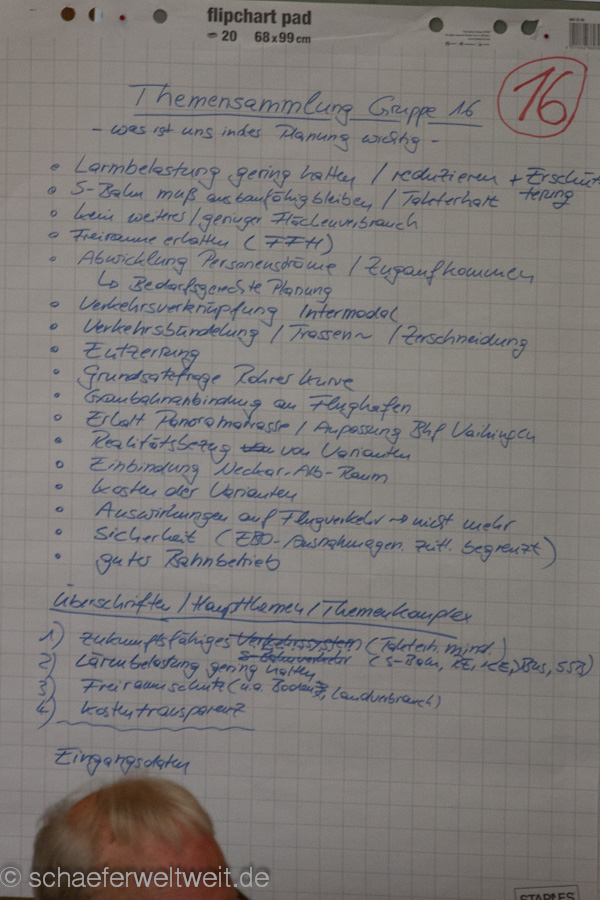 flipchart pad
20 68 x 99 cm
Themensammlung Gruppe 16
16
- was ist uns in der Planung wichtig -
• Lärmbelastung gering halten / reduzieren + Erschüt-
terung
• S-Bahn muß ausbaufähig bleiben / Takterhalt
• kein weiteres / geringer Flächenverbrauch
• Freiräume erhalten (FFH)
• Abwicklung Personenströme / Zugaufkommen
↳ Bedarfsgerechte Planung
• Verkehrsverknüpfung Intermodal
• Verkehrsbündelung / Trassen~ / Zerschneidung
• Entzerrung
• Grundsatzfrage Rohrer Kurve
• Gäubahnanbindung an Flughafen
• Erhalt Panoramatrasse / Anpassung Bhf Vaihingen
• Realitätsbezug von Varianten
• Einbindung Neckar-Alb-Raum
• Kosten der Varianten
• Auswirkungen auf Flugverkehr → nicht mehr
• Sicherheit (EBO-Ausnahmegen. zeitl. begrenzt)
• guter Bahnbetrieb
Überschriften / Hauptthemen / Themenkomplex
1) Zukunftsfähiges Verkehrssystem (Takterh. mind.)
S-Bahnverkehr (S-Bahn, RE, ICE, Bus, SSB)
2) Lärmbelastung gering halten
3) Freiraumschutz (u.a. Boden, Landverbrauch)
4) Kostentransparenz
Eingangsdaten
© schaeferweltweit.de
STAPLES